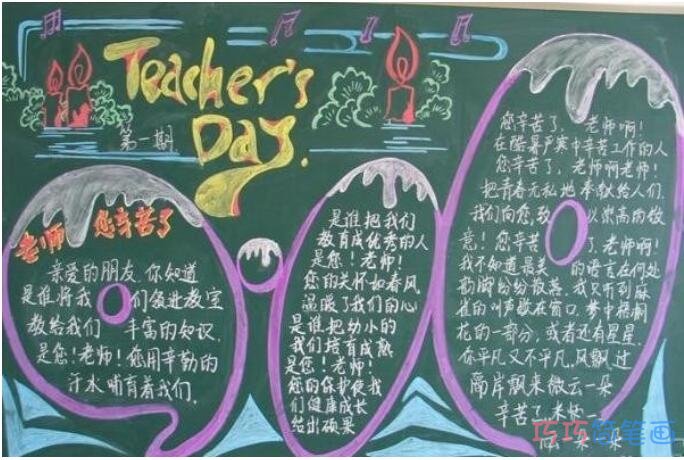 Teacher's
Day.
第一期
老师 您辛苦了
亲爱的朋友,你知道
是谁将我们领进教室
教给我们丰富的知识.
是您!老师!您用辛勤的
汗水哺育着我们.
是谁把我们
教育成优秀的人
是您!老师!
您的关怀如春风
温暖了我们的心
是谁把幼小的
我们培育成熟
是您!老师!
您的保护使我
们健康成长
给出硕果
您辛苦了,老师啊!
在酷暑严寒中辛苦工作的人
您辛苦了,老师啊老师!
把青春无私地奉献给人们.
我们向您致以崇高的敬
意!您辛苦了老师啊!
我不知道最美的语言在何处
纷纷投燕.我只听到麻
雀的叫声歇在窗口.梦中梧桐
花的一部分,或者还有星星.
你平凡又不平凡,风飘过
隔岸飘来微云一朵
辛苦了
巧巧简笔画